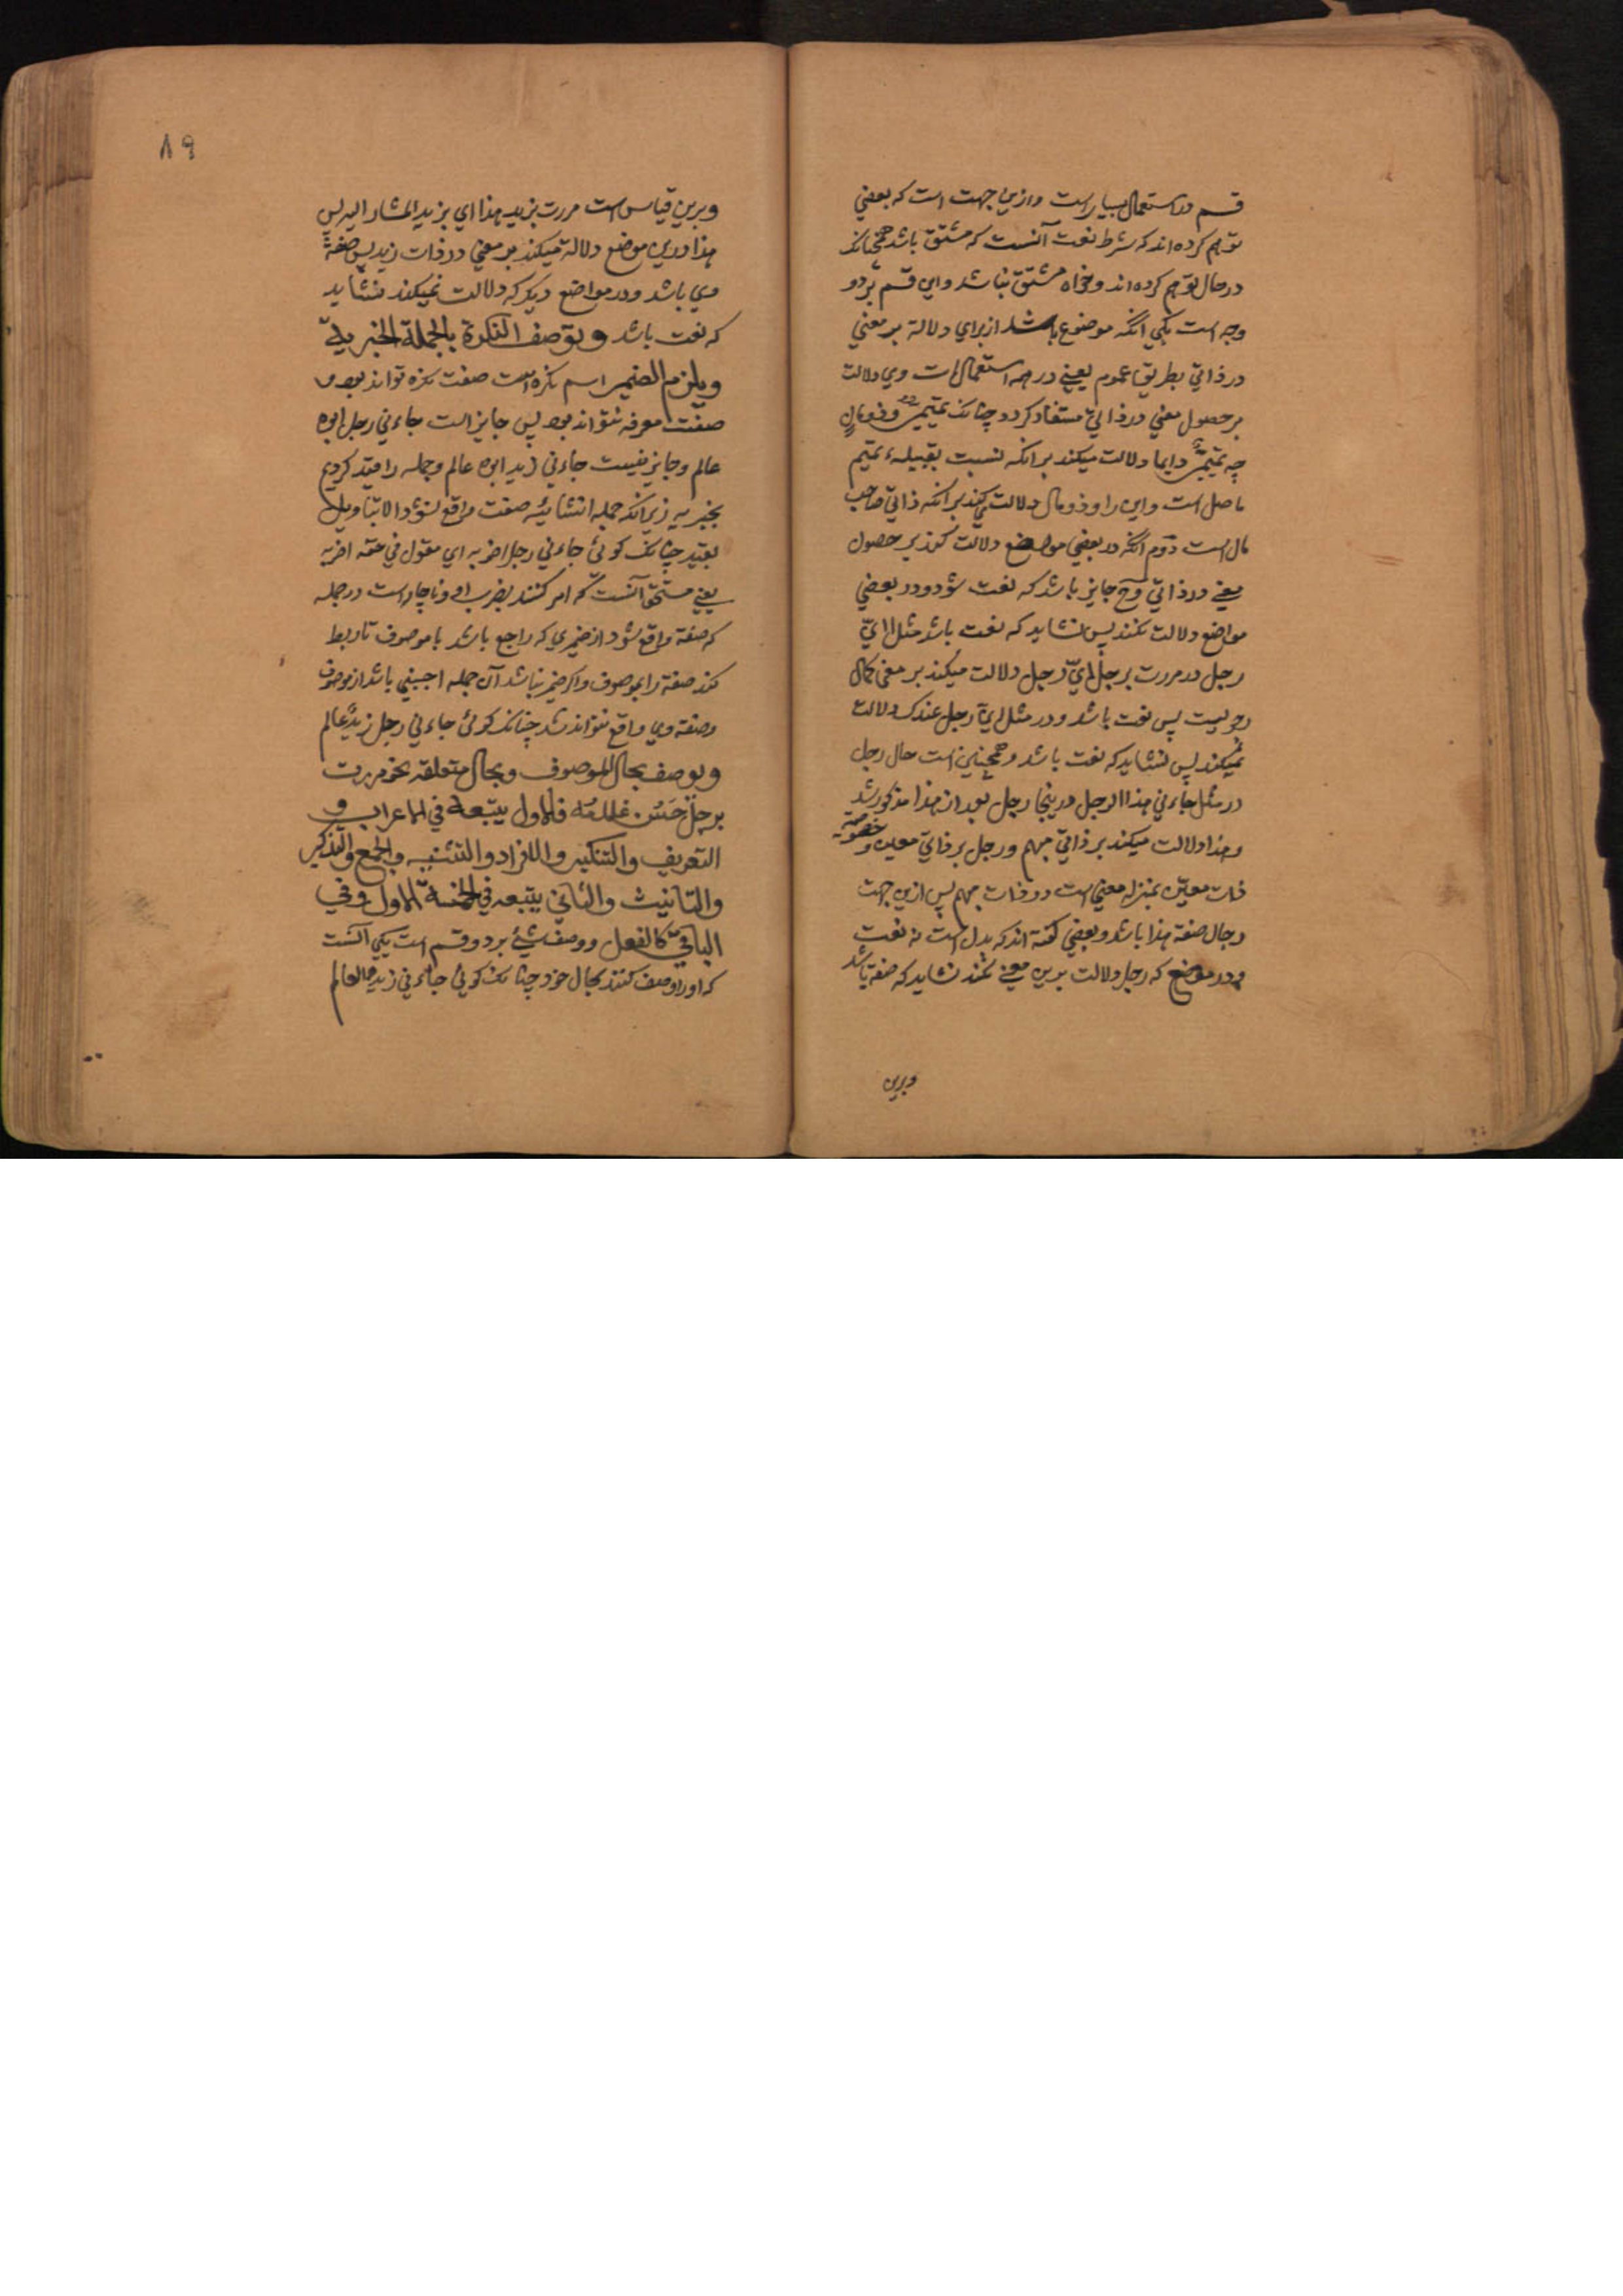 قسم در استعمال بسیار است و ازین جهت است که بعضي
توهم کرده اند که شرط نعت آنست که مشتق باشد همچنانک
در حال توهم کرده اند و خواه مشتق نباشد و این قسم بر دو
وجه است یکي آنکه موضوع باشد از براي دلالة بر معني
در ذاتي بطریق عموم یعني در همه استعمالات وي دلالت
بر حصول معني در ذاتي مستفاد کردد چنانک تمیمي و ذو مال
چه تمیمي دایما دلالت میکند بر انکه نسبت بقبیلهء تمیم
حاصل است و این را و ذو مال دلالت میکند بر انکه ذاتي صاحب
مال است دوم آنکه در بعضي مواضع دلالت کند بر حصول
معني در ذاتي و ح جایز باشد که نعت شود و در بعضي
مواضع دلالت نکند پس نشاید که نعت باشد مثل ايّ
رجل در مررت برجل ايّ رجل دلالت میکند بر معني کمال
رجولیت پس نعت باشد و در مثل ايّ رجل عندک دلالت
نمیکند پس نشاید که نعت باشد و همچنین است حال رجل
در مثل جاءني هذا الرجل درینجا رجل بعد از هذا مذکور شد
و هذا دلالت میکند بر ذاتي مبهم و رجل بر ذاتي معین و خصوصیة
ذات معیّن بمنزله معني است در ذات مبهم پس ازین جهت
رجال صفة هذا باشد و بعضي کفته اند که بدل است نه نعت
و در موضع که رجل دلالت برین معني نکند نشاید که صفة باشد
وبرین
٨٩
وبرین قیاس است مررت بزید هذا اي بزید المشار الیه پس
هذا درین موضع دلالة میکند بر معني در ذات زید پس صفة
وي باشد و در مواضع دیکر که دلالت نمیکند نشاید
که نعت باشد وتوصف النکرة بالجملة الخبریة
ویلزم الضمیر اسم نکره است صفت نکره تواند بود و
صفت معرفه نتواند بود پس جایز است جاءني رجل ابوه
عالم و جایز نیست جاءني زید ابوه عالم و جمله را قید کردیم
بخبریه زیرانکه جمله انشائیه صفت واقع نشود الا بتاویل
بعید چنانک کوئي جاءني رجل اضربه اي مقول في حقه اضربه
یعني مستحق آنست که امر کنند بضرب او و ناچار است در جمله
که صفة واقع شود از ضمیري که راجع باشد با موصوف تا ربط
کند صفة را بموصوف و اکر ضمیر نباشد آن جمله اجنبي باشد از موصوف
و صفة وي واقع نتواند شد چنانک کوئي جاءني رجل زیدٌ عالم
ویوصف بحال الموصوف وبحال متعلقه نحو مررت
برجلٍ حَسَن غلامُه فالاول یتبعه في الاعراب و
التعریف والتنکیر والافراد والتثنیه والجمع والتذکیر
والتانیث والثاني یتبعه في الخمسة الاول وفي
الباقي کالفعل و وصف شيء بر دو قسم است یکي آنست
که او را وصف کنند بحال خود چنانک کوئي جاءني زید العالم